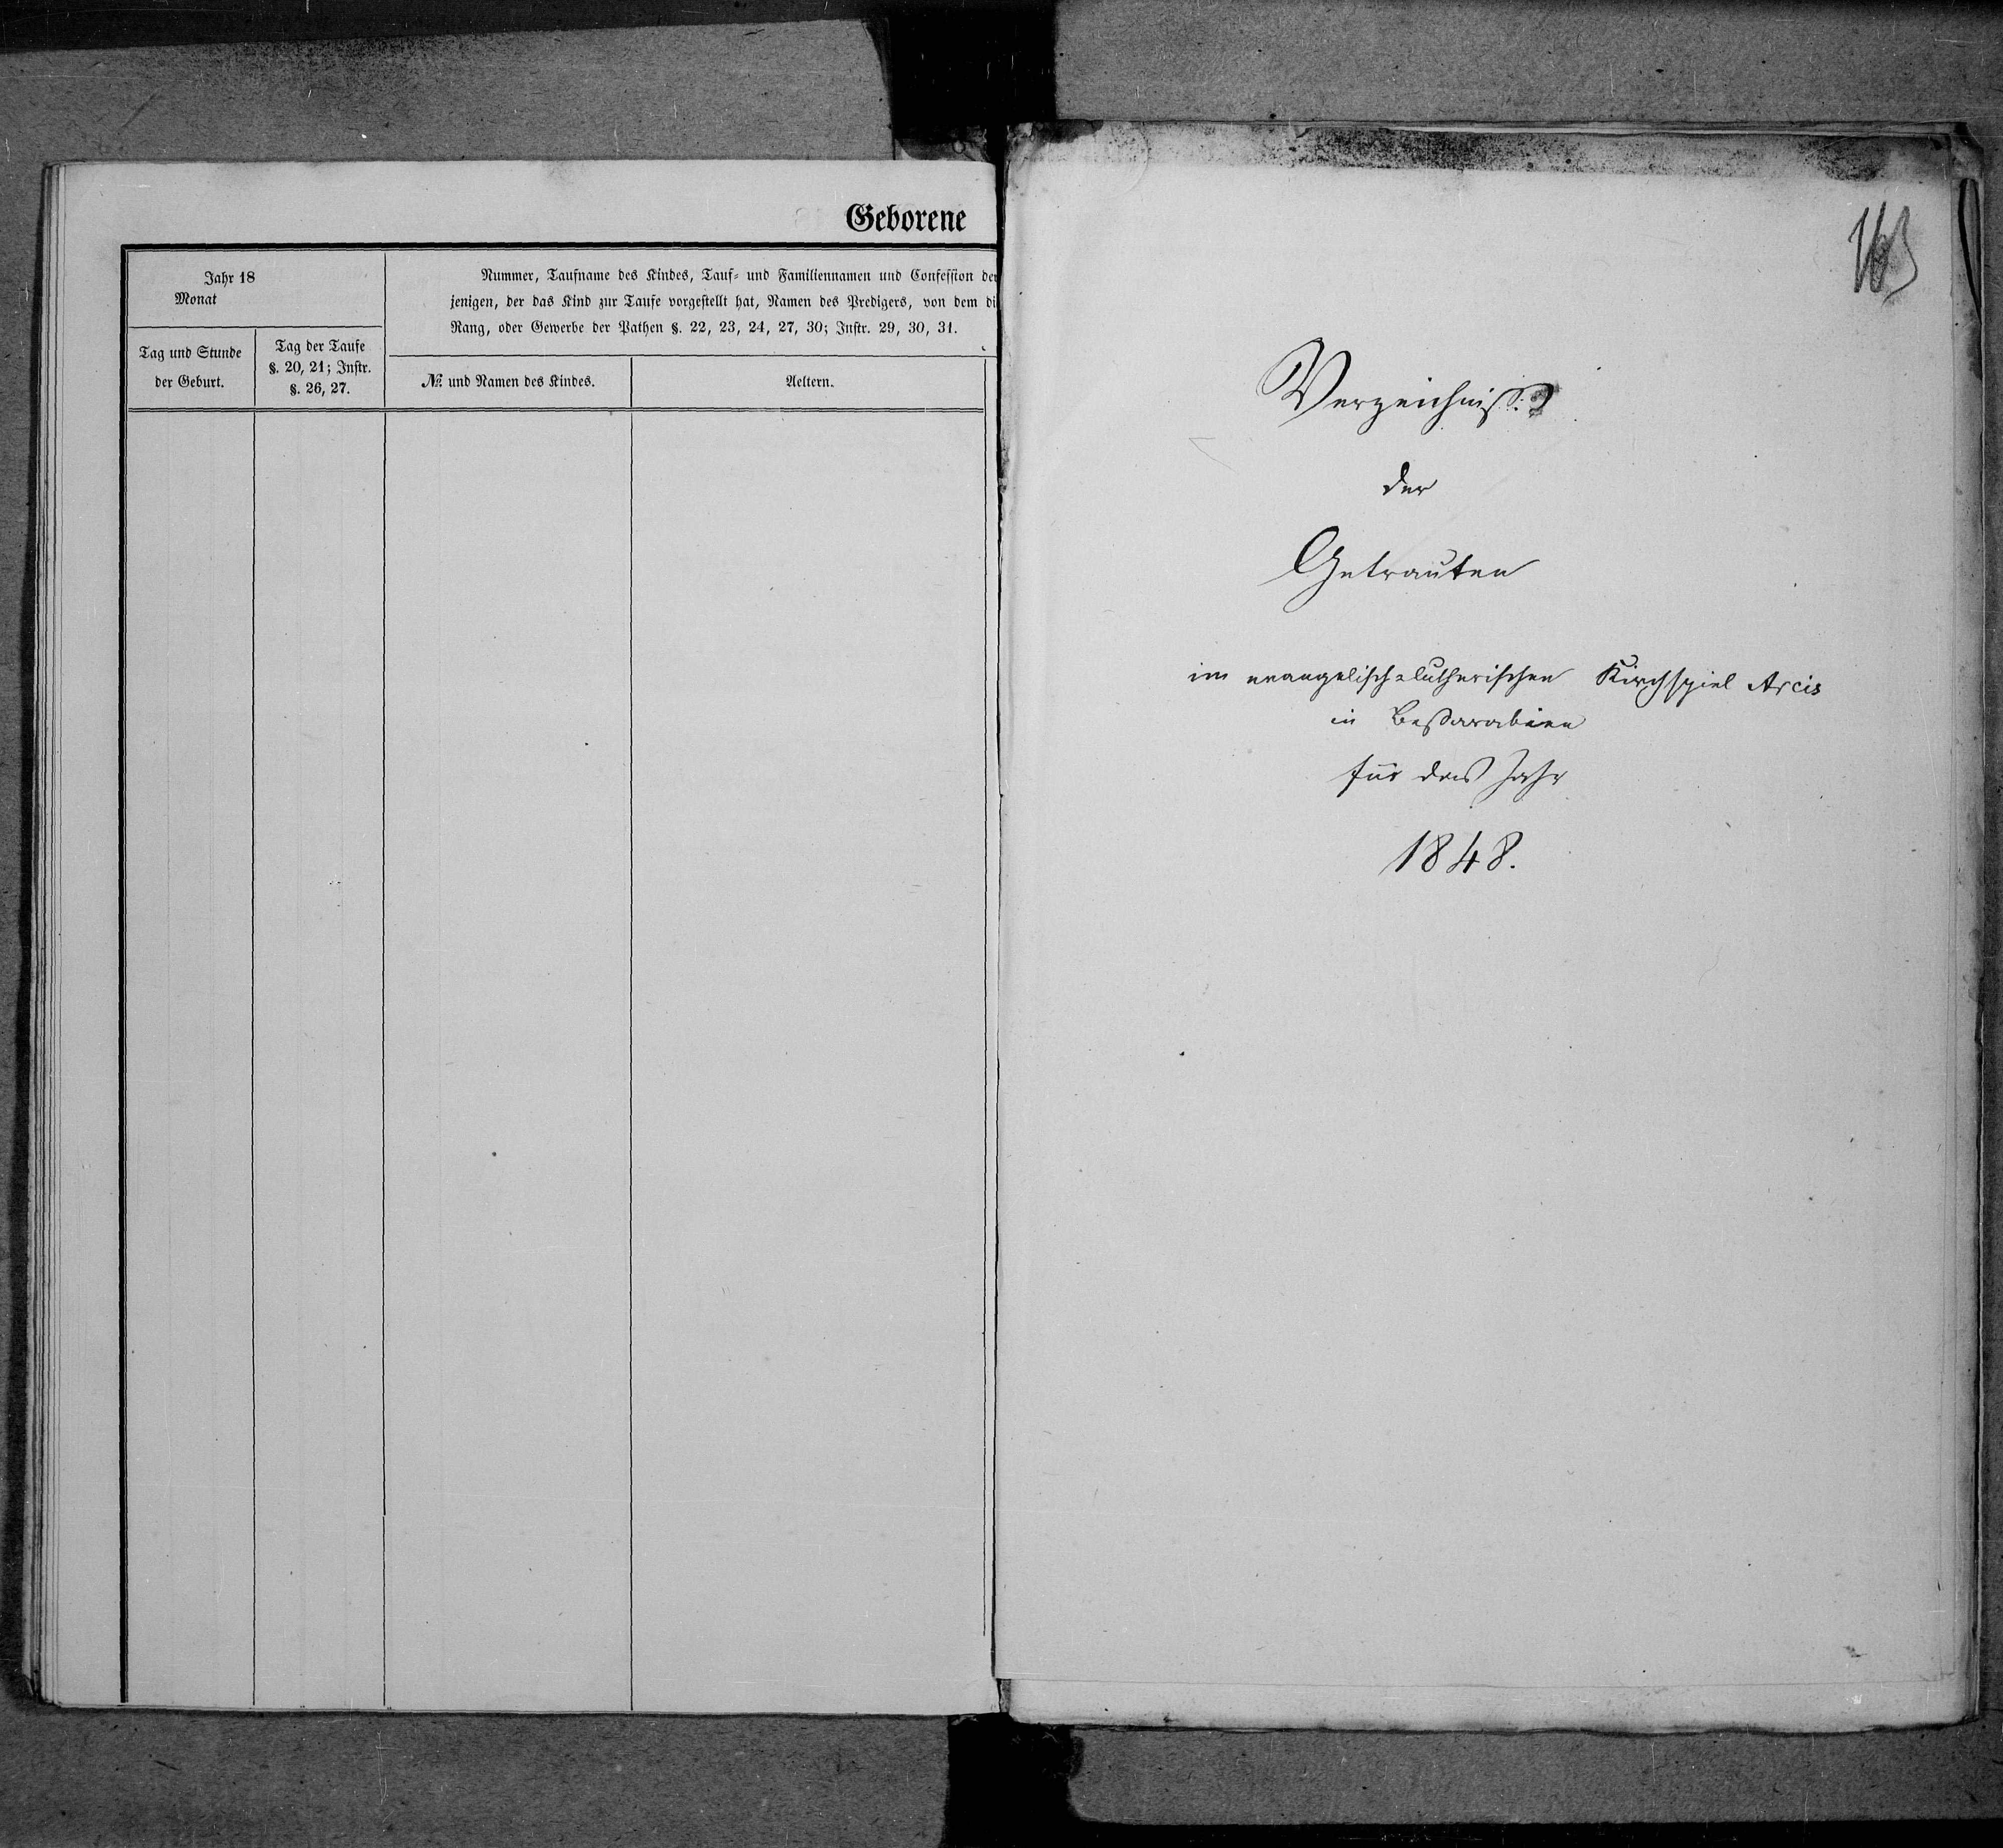 Geborene
Jahr 18
Monat
Nummer, Taufname des Kindes, Tauf- und Familiennamen und Confession der
jenigen, der das Kind zur Taufe vorgestellt hat, Namen des Predigers, von dem di
Rang, oder Gewerbe der Pathen §. 22, 23, 24, 27, 30; Instr. 29, 30, 31.
Tag und Stunde
der Geburt.
Tag der Taufe
§. 20, 21; Instr.
§. 26, 27.
№ und Namen des Kindes.
Aeltern.
Verzeichniß
der
Getrauten
im evangelisch-lutherischen Kirchspiel Arcis
in Beßarabien
für das Jahr
1848.